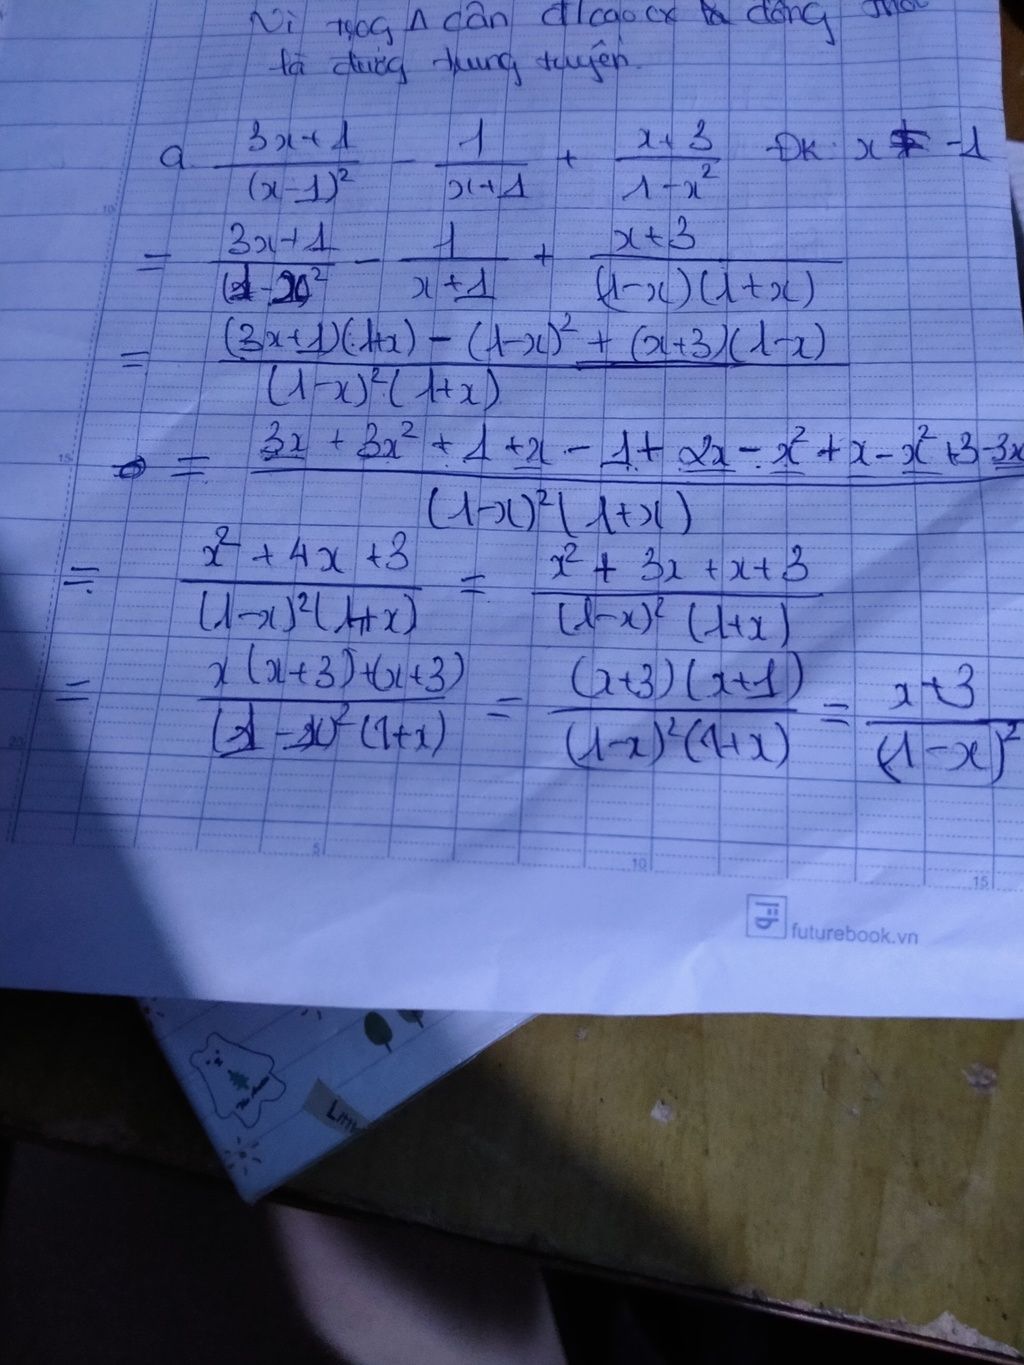 Vì trog Δ cân đ/cao cx là đồng thời
là đường trung tuyến.
a 3x+1/(x-1)² - 1/x+1 + x+3/1-x² ĐK: x ≠ -1
= 3x+1/(1-x)² - 1/x+1 + x+3/(1-x)(1+x)
= (3x+1)(1+x) - (1-x)² + (x+3)(1-x)/(1-x)²(1+x)
= 3x + 3x² + 1 + x - 1 + 2x - x² + x - x² + 3 - 3x/(1-x)²(1+x)
= x² + 4x + 3/(1-x)²(1+x) = x² + 3x + x + 3/(1-x)²(1+x)
= x(x+3)+(x+3)/(1-x)²(1+x) = (x+3)(x+1)/(1-x)²(1+x) = x+3/(1-x)²
5 10 15
futurebook.vn